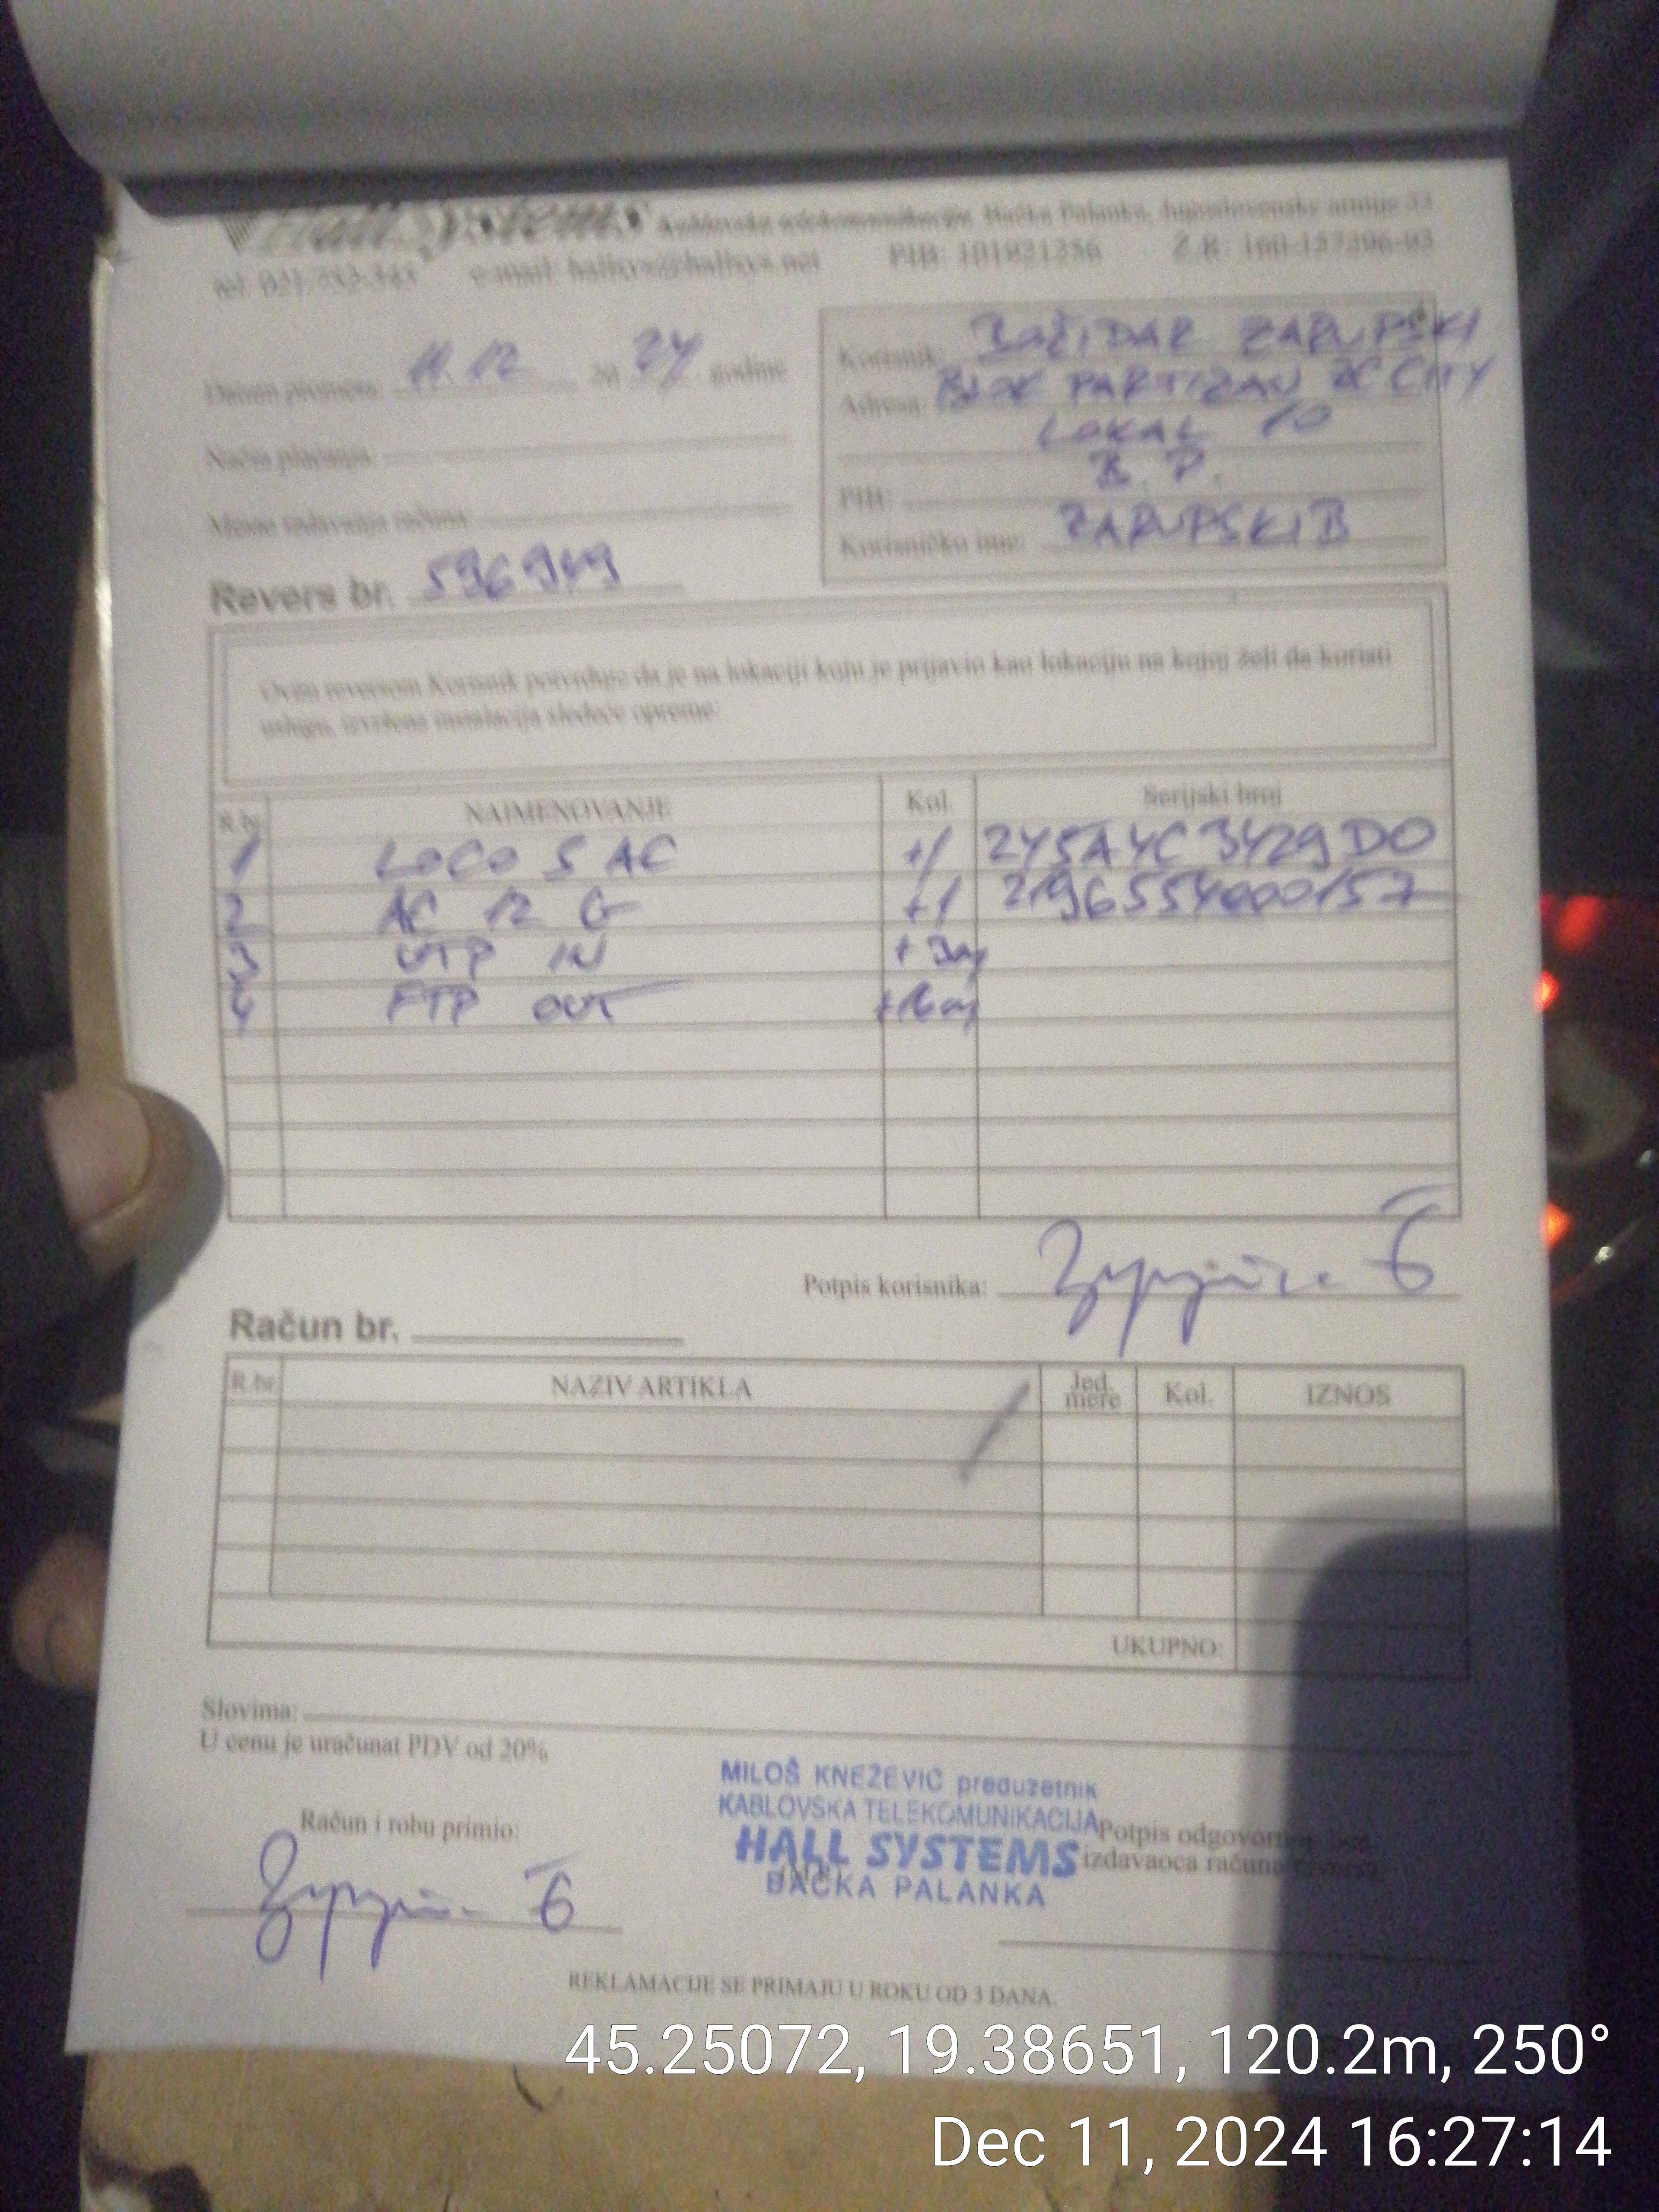 Hall Systems kablovske telekomunikacije, Bačka Palanka, Jugoslovenske armije 33
tel. e-mail: PIB: 101921256 Ž.R.
Datum prometa: 11.12 20 24 godine
Način plaćanja:
Mesto izdavanja računa:
Korisnik: BOŽIDAR ZARUPSKI
Adresa: BLOK PARTIZAN CITY
LOKAL 10
B. P.
PIB:
Korisničko ime: ZARUPSKIB
Revers br. 596949
Ovim reversom Korisnik potvrđuje da je na lokaciji koju je prijavio kao lokaciju na kojoj želi da koristi
uslugu, izvršena instalacija sledeće opreme:
R.br. NAIMENOVANJE Kol. Serijski broj
1 LOCO 5 AC +1 245A4C3429D0
2 AC 12 G +1 2196554000157
3 UTP IN + 3m
4 FTP OUT +16m
Potpis korisnika:
Račun br.
R.br. NAZIV ARTIKLA Jed. mere Kol. IZNOS
UKUPNO:
Slovima:
U cenu je uračunat PDV od 20%
MILOŠ KNEŽEVIĆ preduzetnik
KABLOVSKA TELEKOMUNIKACIJA
HALL SYSTEMS
BAČKA PALANKA
Račun i robu primio:
Potpis odgovornog
izdavaoca računa
REKLAMACIJE SE PRIMAJU U ROKU OD 3 DANA.
45.25072, 19.38651, 120.2m, 250°
Dec 11, 2024 16:27:14